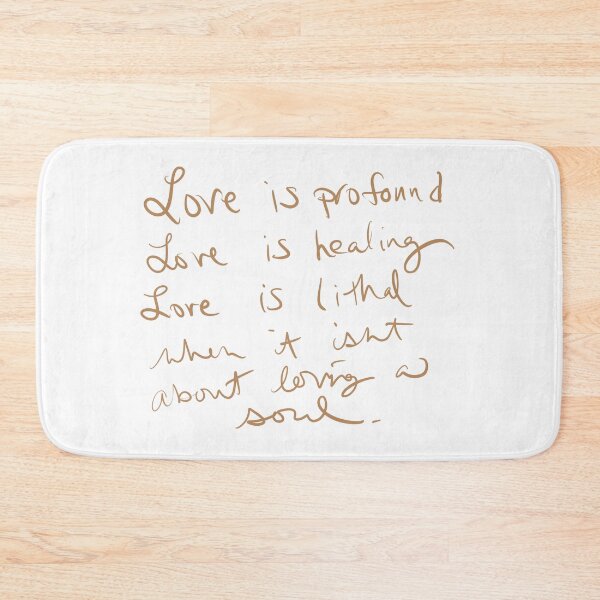 Love is profound
Love is healing
Love is lithal
when it isnt
about loving a
soul.